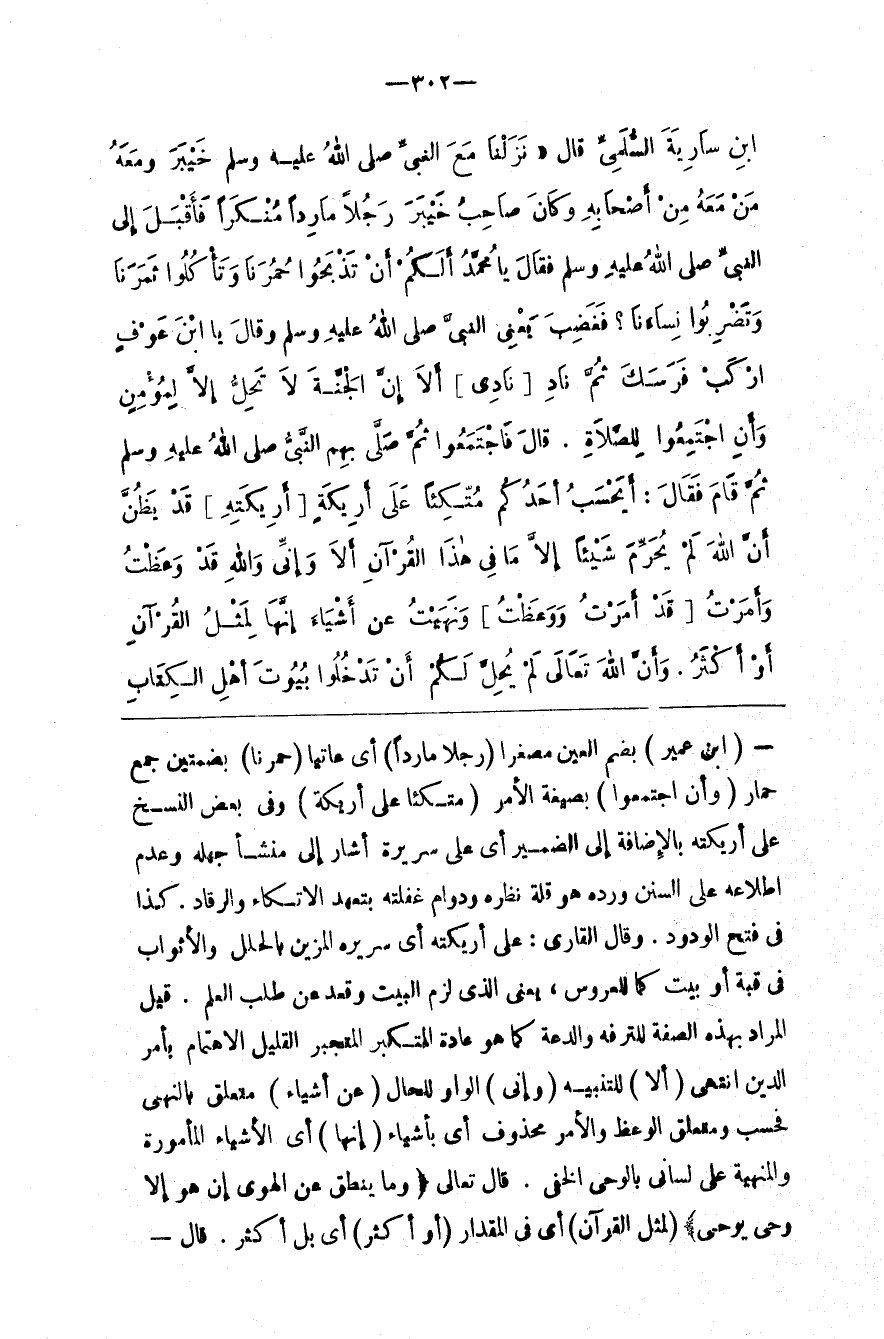 —٣٠٢—
ابنِ سَارِيَةَ السُّلَمِىِّ قال « نَزَلْنَا مَعَ النبىِّ صلى اللهُ عليـه وسلم خَيْبَرَ ومَعَهُ
مَنْ مَعَهُ مِنْ أَصْحابِهِ وكَانَ صاحِبُ خَيْبَرَ رَجُلاً مارِداً مُنْـكَراً فَأَقْبَـلَ إلى
النبىِّ صلى اللهُ عليهِ وسلم فقالَ يا مُحمَّدُ أَلَـكُمْ أَنْ تَذْبَحُوا حُمُرَنَا وَتَأْ كُلُوا ثمَرَنَا
وَتَضْرِبُوا نِساءَنا ؟ فَغَضِبَ يَعْنِى النبىَّ صلى اللهُ عليهِ وسلم وقالَ يا ابْنَ عَوْفٍ
ارْكَبْ فَرَسَكَ ثُمَّ نَادِ [ نَادِى ] أَلاَ إِنَّ الْجَنَّـةَ لاَ تَحِلُّ إلاَّ لِمُؤْمِنٍ
وَأَنِ اجْتَمِعُوا لِلصَّلاَةِ . قالَ فَاجْتَمَعُوا ثُمَّ صَلَّى بِهِم النَّبىُّ صلى اللهُ عليهِ وسلم
ثُمَّ قَامَ فَقَالَ : أَيَحْسَبُ أَحَدُ كُم مُتَّـكِئاً عَلَى أَرِيكَةٍ [ أَرِيكَتِهِ ] قَدْ يَظُنُّ
أَنَّ اللهَ لَمْ يُحَرِّمْ شَيْئاً إلاَّ مَا فِى هٰذَا القُرْآنِ أَلاَ وَإِنِّى وَاللهِ قَدْ وَعَظْتُ
وَأَمَرْتُ [ قَدْ أَمَرْتُ وَوَعَظْتُ ] وَنَهَيْتُ عن أَشْيَاءَ إِنَّهَا لَمِثْـلُ القُرْآنِ
أَوْ أَ كْثَرُ . وَأَنَّ اللهَ تَعَالَى لَمْ يُحِلَّ لَـكُمْ أَنْ تَدْخُلُوا بُيُوتَ أَهْلِ الـكِتَابِ
— ( ابن عمير ) بضم العين مصغرا (رجلا مارداً) أى عاتيا (حمرنا) بضمتين جمع
حمار ( وأن اجتمعوا ) بصيغة الأمر ( متـكئا على أريكة ) وفى بعض النسـخ
على أريكته بالإضافة إلى الضمـير أى على سريرة أشار إلى منشـأ جهله وعدم
اطلاعه على السنن ورده هو قلة نظاره ودوام غفلته بتعهد الاتـكاء والرقاد . كـذا
فى فتح الودود . وقال القارى : على أريكته أى سريره المزين بالحلل والأثواب
فى قبة أو بيت كما للعروس ، يعنى الذى لزم البيت وقعد عن طلب العلم . قيل
المراد بهذه الصفة للترفه والدعة كما هو عادة المتـكبر المتجبر القليل الاهتمام بأمر
الدين انتهى ( ألا ) للتنبيـه ( وإنى ) الواو للحال ( عن أشياء ) متعلق بالنهى
فحسب ومتعلق الوعظ والأمر محذوف أى بأشياء ( إنها ) أى الأشياء المأمورة
والمنهية على لسانى بالوحى الخفى . قال تعالى ﴿ وما ينطق عن الهوى إن هو إلا
وحى يوحى﴾ (لمثل القرآن) أى فى المقدار (أو أ كثر) أى بل أ كثر . قال —